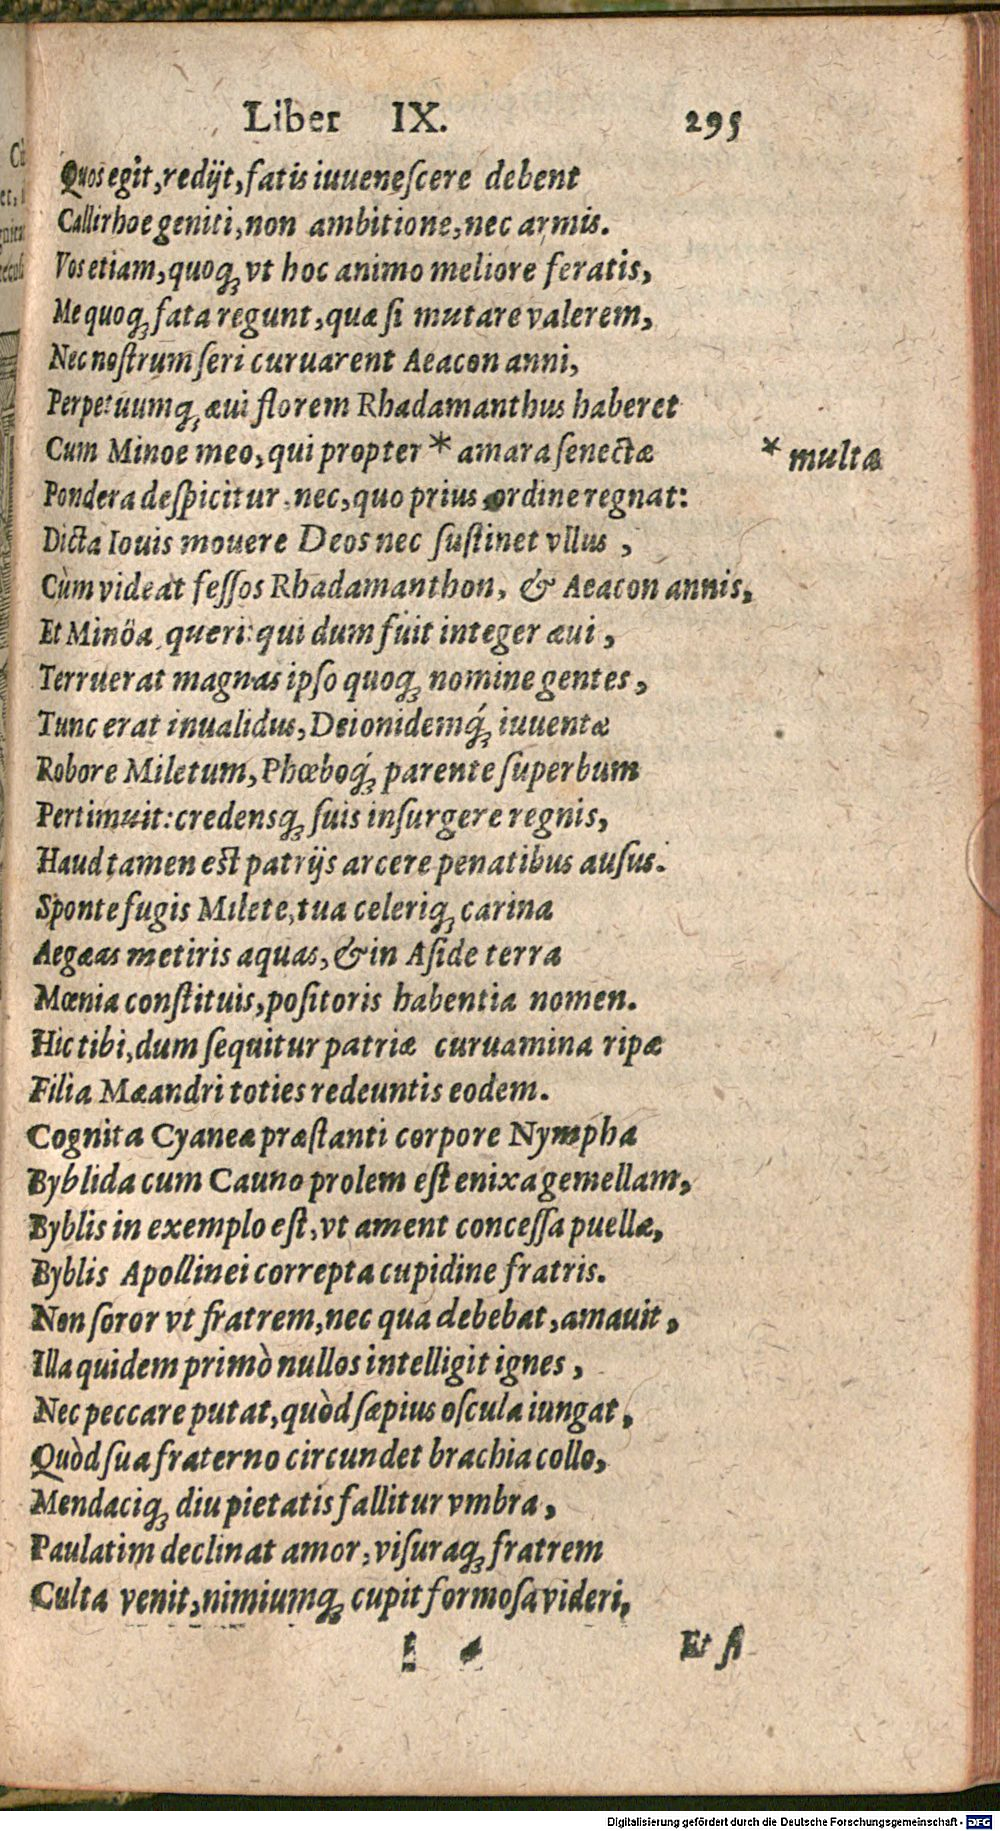 Liber IX. 295
Quos egit, redijt, fatis iuuenescere debent
Callirhoe geniti, non ambitione, nec armis.
Vos etiam, quoq; vt hoc animo meliore feratis,
Me quoq; fata regunt, quæ si mutare valerem,
Nec nostrum seri curuarent Aeacon anni,
Perpetuumq; æui florem Rhadamanthus haberet
Cum Minoe meo, qui propter * amara senectæ * multæ
Pondera despicitur, nec, quo prius ordine regnat:
Dicta Iouis mouere Deos nec sustinet vllus ,
Cùm videat fessos Rhadamanthon, & Aeacon annis,
Et Minöa queri: qui dum fuit integer æui ,
Terruerat magnas ipso quoq; nomine gentes ,
Tunc erat inualidus, Deionidemq́; iuuentæ
Robore Miletum, Phœboq́; parente superbum
Pertimuit: credensq; suis insurgere regnis,
Haud tamen est patrijs arcere penatibus ausus.
Sponte fugis Milete, tua celeriq; carina
Aegæas metiris aquas, & in Aside terra
Mœnia constituis, positoris habentia nomen.
Hic tibi, dum sequitur patriæ curuamina ripæ
Filia Mæandri toties redeuntis eodem.
Cognita Cyaneæ præstanti corpore Nympha
Byblida cum Cauno prolem est enixa gemellam,
Byblis in exemplo est, vt ament concessa puellæ,
Byblis Apollinei correpta cupidine fratris.
Non soror vt fratrem, nec qua debebat, amauit ,
Illa quidem primò nullos intelligit ignes ,
Nec peccare putat, quòd sæpius oscula iungat ,
Quòd sua fraterno circundet brachia collo,
Mendaciq; diu pietatis fallitur vmbra ,
Paulatim declinat amor, visuraq; fratrem
Culta venit, nimiumq; cupit formosa videri,
Et si
Digitalisierung gefördert durch die Deutsche Forschungsgemeinschaft - DFG